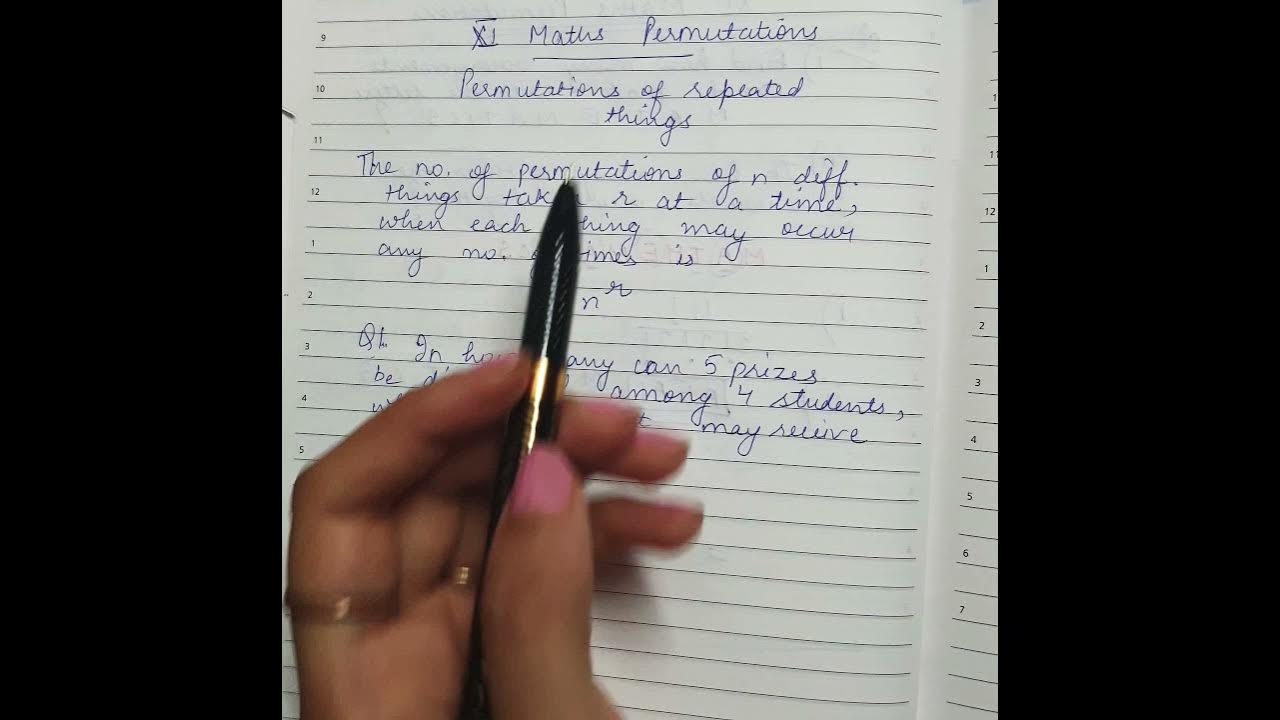 XI Maths Permutations
Permutations of repeated
things
The no. of permutations of n diff.
things r at a time,
when each may occur
any no. is
n^r
Q1. In can 5 prizes
be among 4 students,
may receive
9
10
11
12
1
2
3
4
5
1
11
12
1
2
3
4
5
6
7